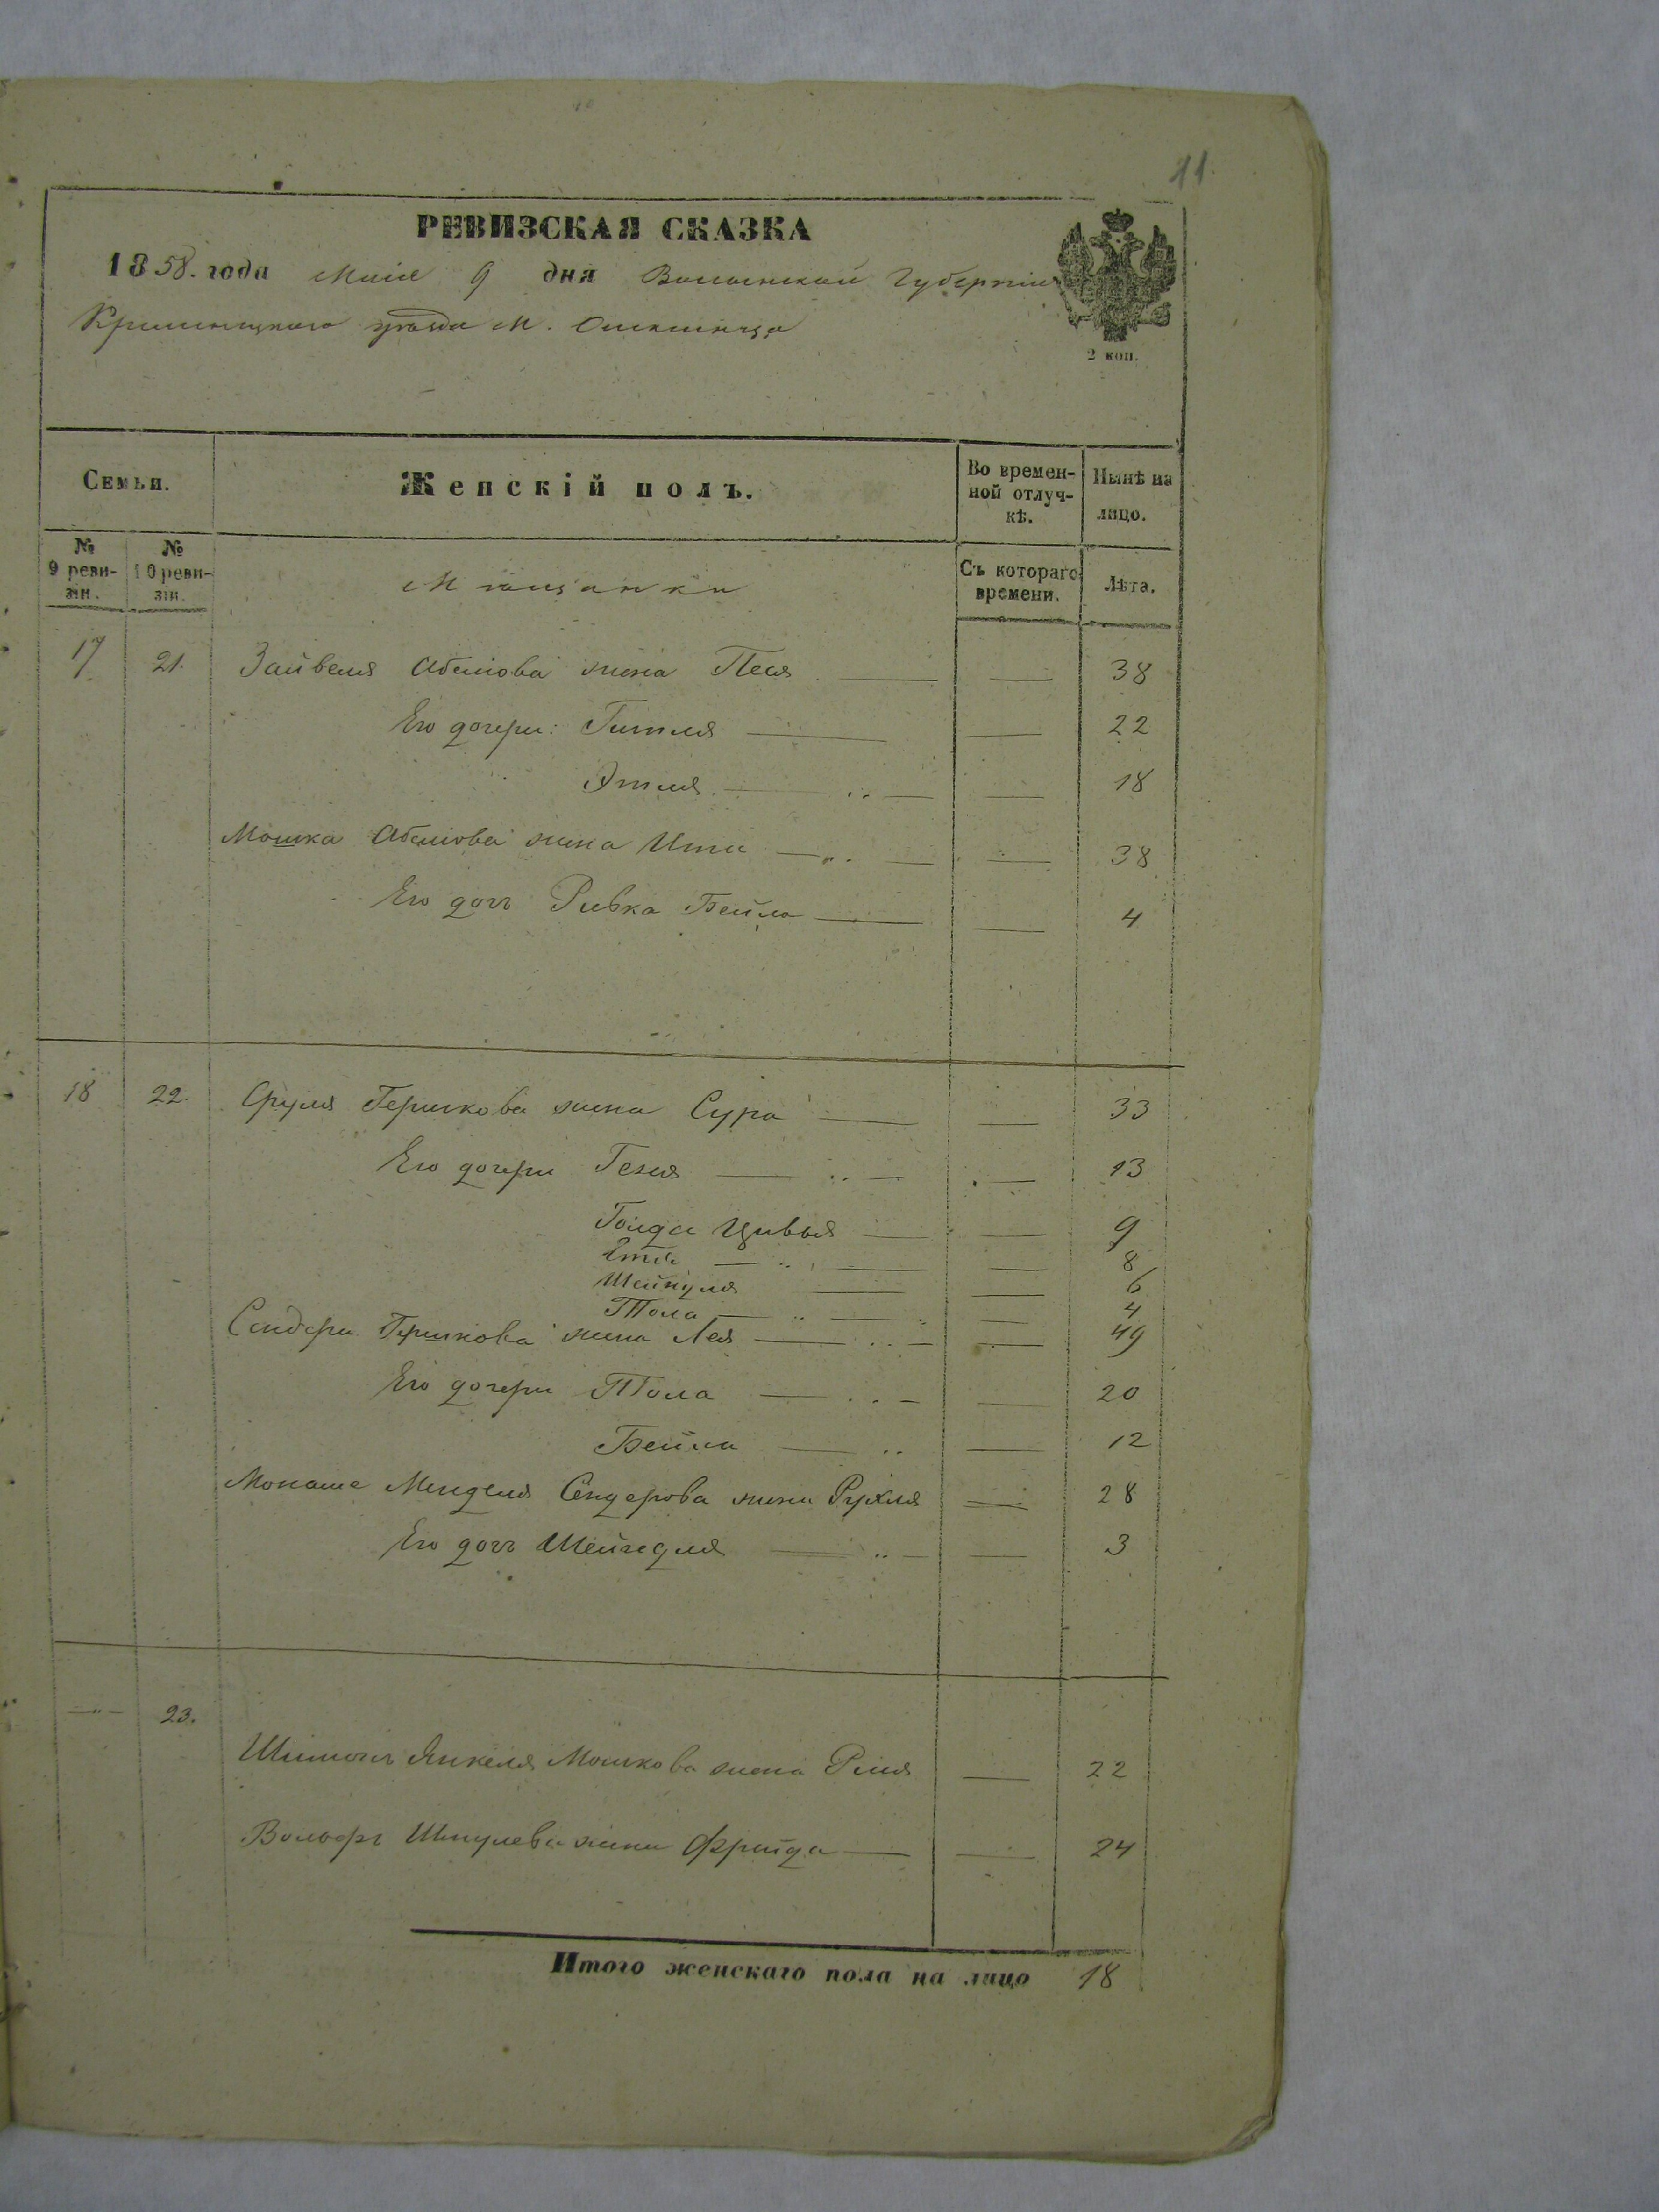 11.
РЕВИЗСКАЯ СКАЗКА
1858. года Маія 9 дня Волынской Губерніи
Кремянецкаго уѣзда М.
2 коп.
Семьи. Женскій полъ. Во времен-ной отлуч-кѣ. Нынѣ на лицо.
№ 9 реви-зіи. № 10 реви-зіи. Мѣщанки Съ котораго времени. Лѣта.
17 21. Зайвеля Абелюва жена Песя — — 38
Его дочери: Гитля — — 22
Этля — „ — — 18
Мошка Абелюва жена Ита — „ — — 38
Его дочь Ривка Бейла — — 4
18 22. Сруля Гершкова жена Сура — — 33
Его дочери Гезя — „ — — 13
Голда Цивья — — 9
Етля — „ — — 8
Шейндля — — 6
Тола — „ — — 4
Сендера Гершкова жена Лея — „ — — 49
Его дочери Тола — „ — — 20
Бейла — „ — 12
Монаше Менделя Сендерова жена Рухля — 28
Его дочь Шейндля — „ — — 3
— „ — 23.
Шимона Янкеля Мошкова жена — 22
Вольфа Шмулева жена Фрейда — — 24
Итого женскаго пола на лицо 18